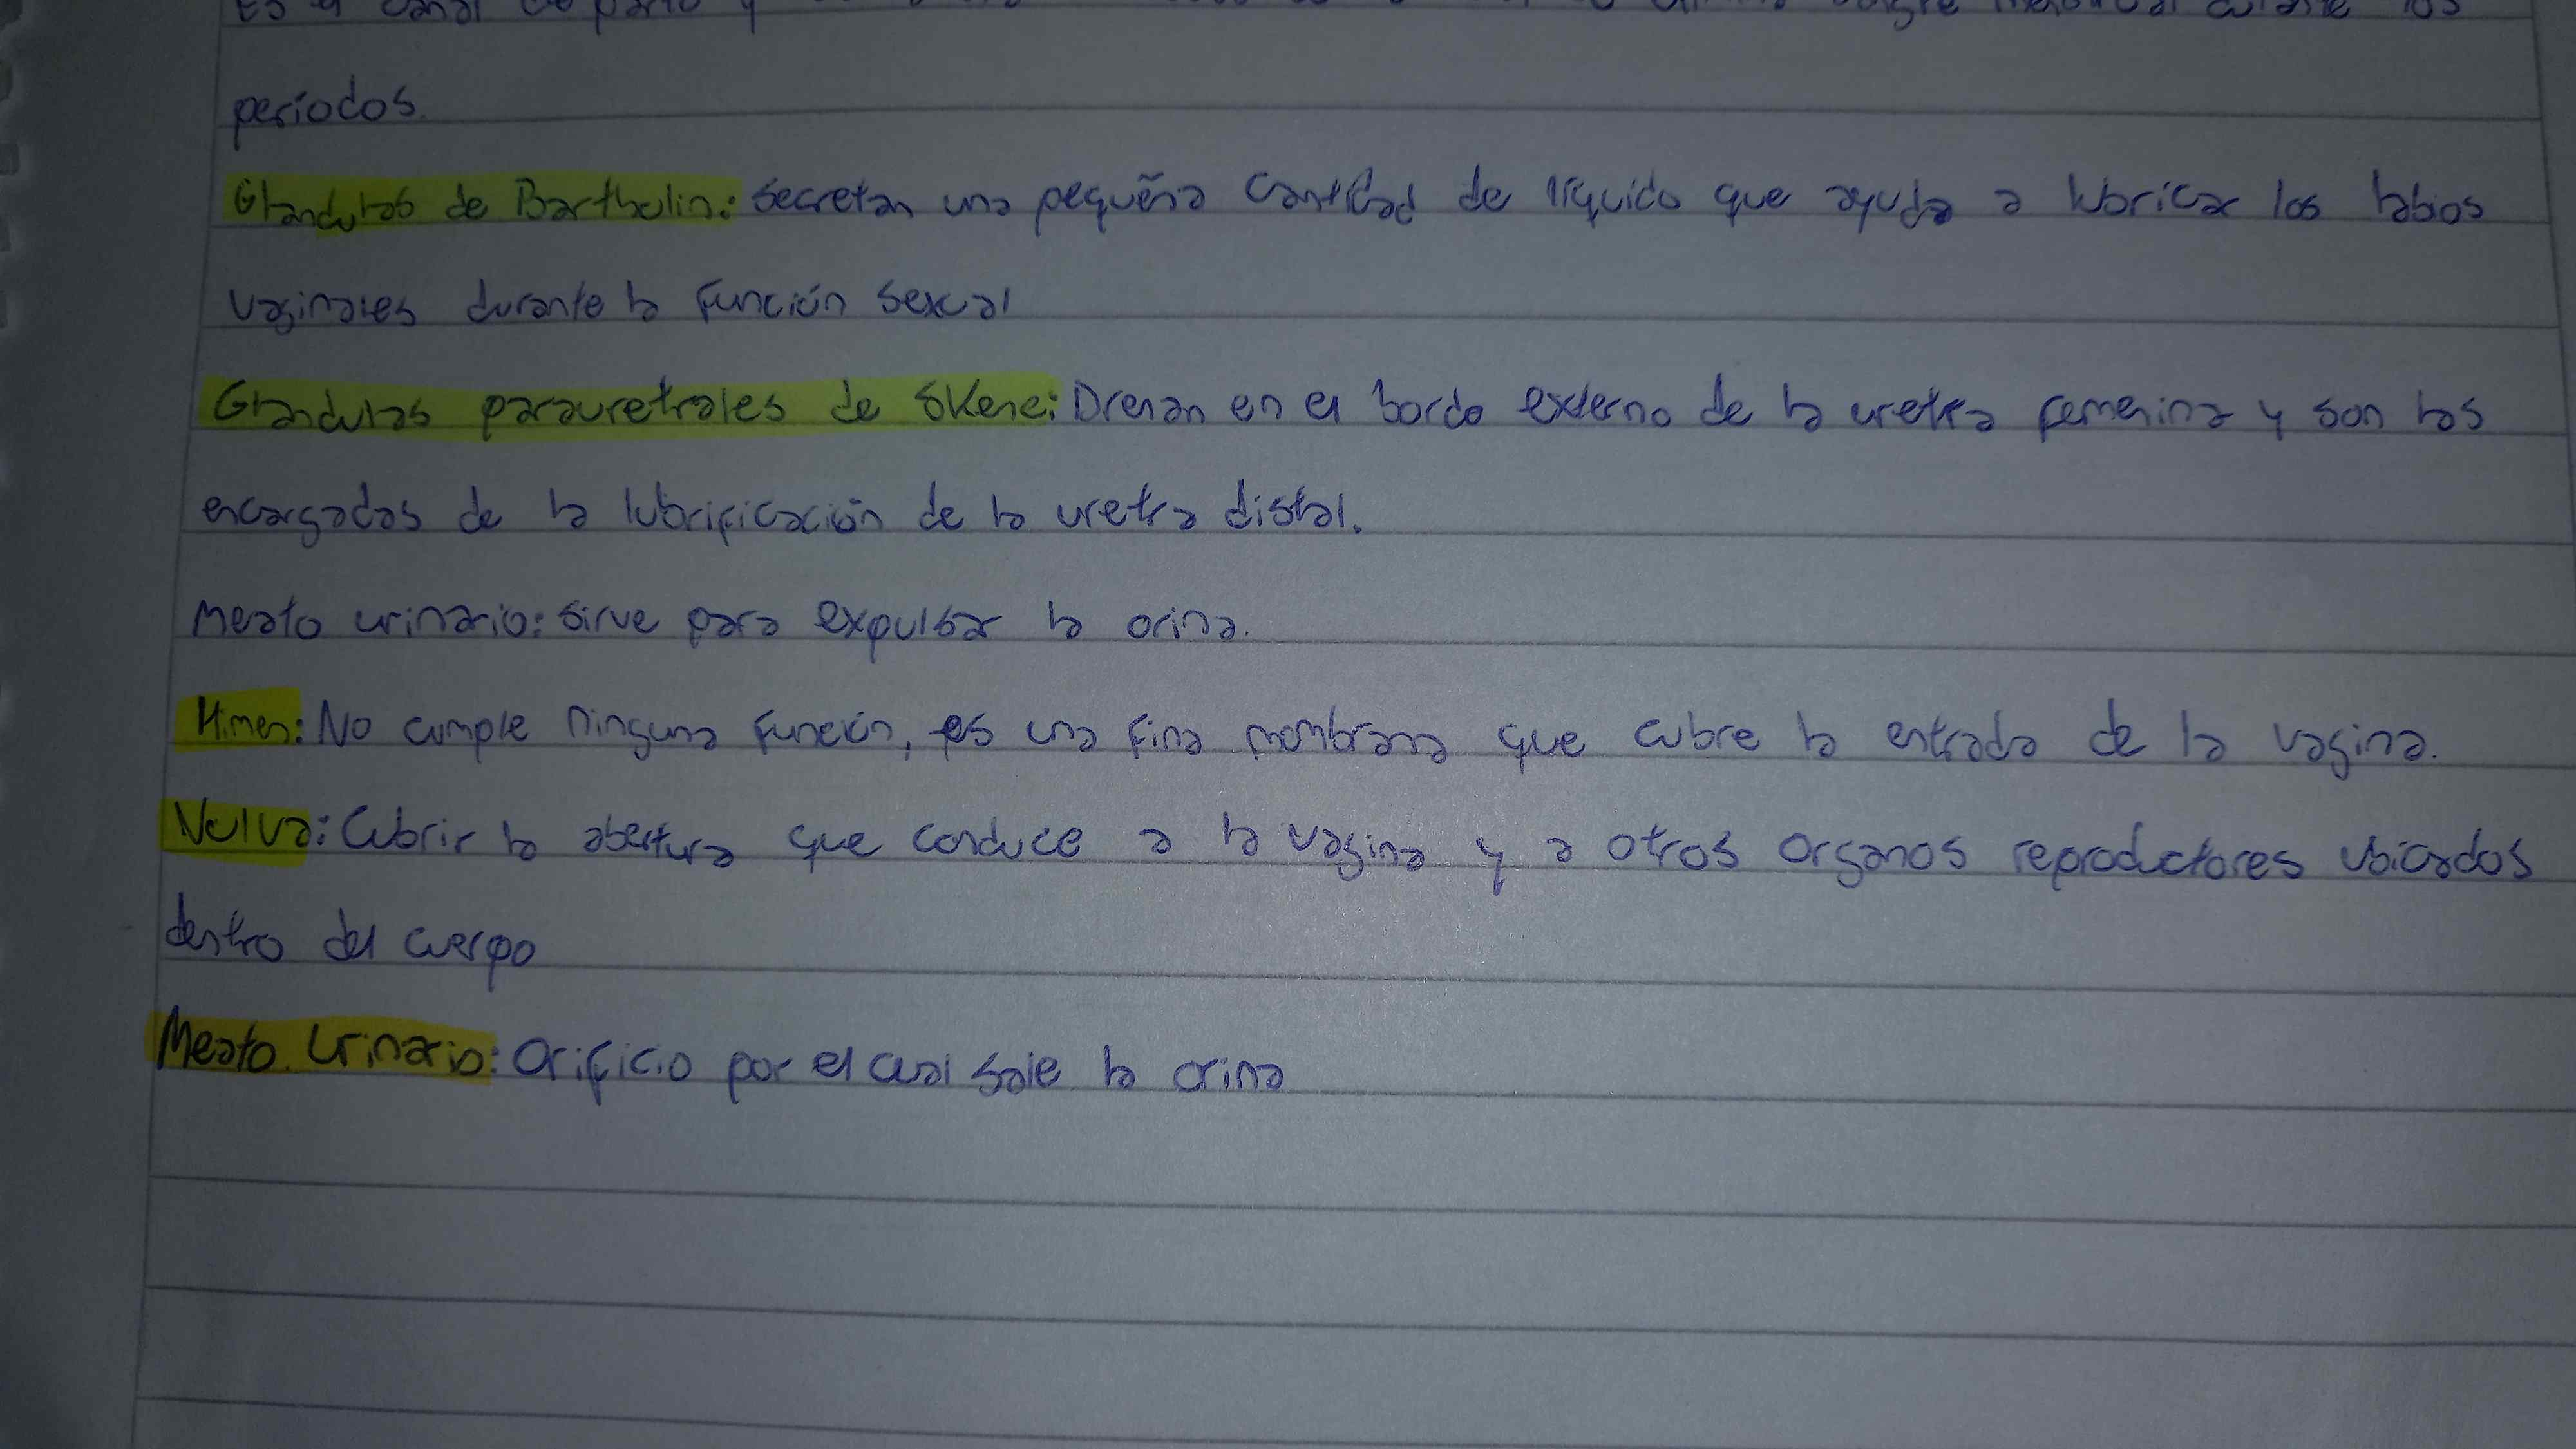 Es el canal de parto y
periodos.
Glandulas de Bartholin: Secretan una pequeña cantidad de líquido que ayuda a lubricar los labios
vaginales durante la función sexual
Glandulas parauretrales de Skene: Drenan en el borde externo de la uretra femenina y son las
encargadas de la lubrificación de la uretra distal.
Meato urinario: Sirve para expulsar la orina.
Himen: No cumple ninguna función, es una fina membrana que cubre la entrada de la vagina.
Vulva: Cubrir la abertura que conduce a la vagina y a otros organos reproductores ubicados
dentro del cuerpo
Meato Urinario: Orificio por el cual sale la orina